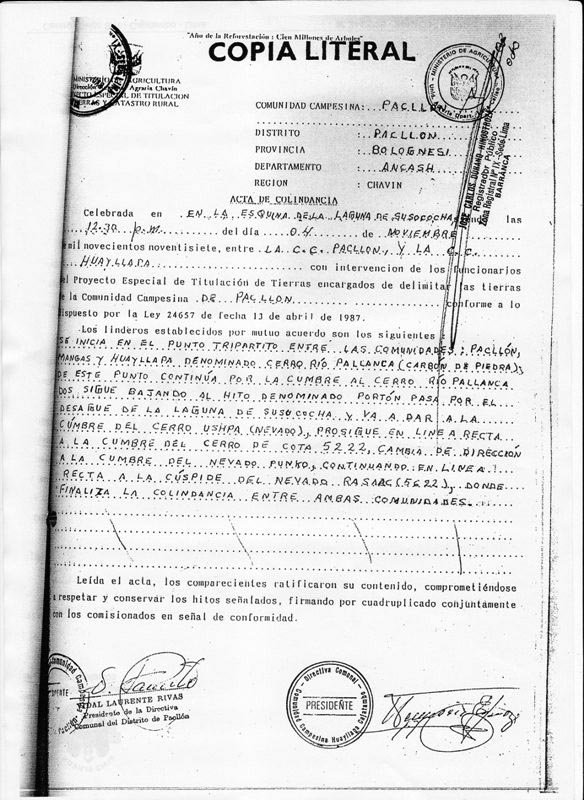 "Año de la Reforestación : Cien Millones de Arboles"
COPIA LITERAL
AGRICULTURA
Agraria Chavín
ESPECIAL DE TITULACION
TIERRAS Y CATASTRO RURAL
MINISTERIO DE AGRICULTURA
COMUNIDAD CAMPESINA: PACLLON
DISTRITO : PACLLON
PROVINCIA : BOLOGNESI
DEPARTAMENTO : ANCASH
REGION : CHAVIN
JOSE CARLOS DURAND HINOSTROZA
Registrador Público
Zona Registral Nº IX - Sede Lima
BARRANCA
ACTA DE COLINDANCIA
Celebrada en EN LA ESQUINA DE LA LAGUNA DE SUSOCOCHA las
12.30 p.m. del día 04 de NOVIEMBRE
mil novecientos noventisiete, entre LA C.C. PACLLON, Y LA C.C.
HUAYLLAPA con intervencion de los funcionarios
l Proyecto Especial de Titulación de Tierras encargados de delimitar las tierras
e la Comunidad Campesina DE PACLLON conforme a lo
ispuesto por la Ley 24657 de fecha 13 de abril de 1987.
Los linderos establecidos por mutuo acuerdo son los siguientes :
SE INICIA EN EL PUNTO TRIPARTITO ENTRE LAS COMUNIDADES: PACLLÓN,
MANGAS Y HUAYLLAPA DENOMINADO CERRO RÍO PALLANCA (CARBON DE PIEDRA),
DE ESTE PUNTO CONTINÚA POR LA CUMBRE AL CERRO RÍO PALLANCA
DOS SIGUE BAJANDO AL HITO DENOMINADO PORTÓN PASA POR EL
DESAGUE DE LA LAGUNA DE SUSOCOCHA Y VA A DAR A LA
CUMBRE DEL CERRO USHPA (NEVADO), PROSIGUE EN LINEA RECTA
A LA CUMBRE DEL CERRO DE COTA 5222, CAMBIA DE DIRECCION
A LA CUMBRE DEL NEVADO PUNKO, CONTINUANDO EN LINEA
RECTA A LA CÚSPIDE DEL NEVADO RASAC (5622), DONDE
FINALIZA LA COLINDANCIA ENTRE AMBAS COMUNIDADES.
Leída el acta, los comparecientes ratificaron su contenido, comprometiéndose
a respetar y conservar los hitos señalados, firmando por cuadruplicado conjuntamente
con los comisionados en señal de conformidad.
VIDAL LAURENTE RIVAS
Presidente de la Directiva
Comunal del Distrito de Pacllón
Directiva Comunal
PRESIDENTE
Comunidad Campesina Huayllapa